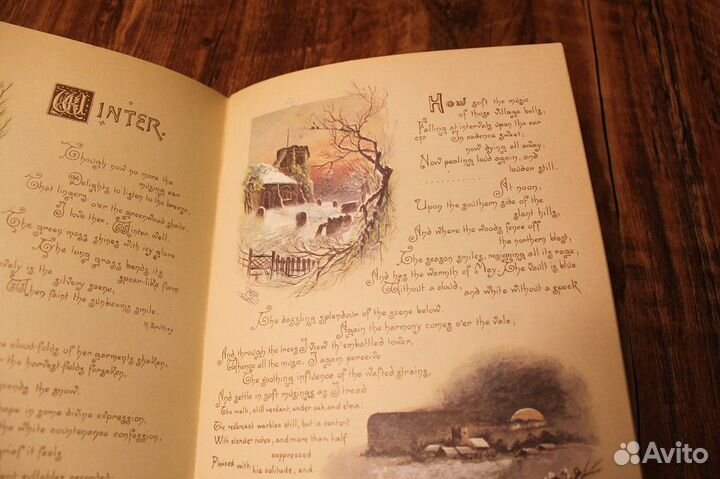 WINTER.
Though now no more the
musing ear
Delights to listen to the breeze,
That lingers o'er the greenwood shade,
I love thee, Winter, well.
The green moss shines with icy glare
The long grass bends its
spear-like form
ovely is the
silvery scene,
When faint the sunbeams smile.
R Southey
cloud-folds of her garments shaken,
harvest-fields forsaken,
pends the snow.
in some divine expression,
the white countenance confession,
grief it feels.
syllables recorded
How soft the music
of those village bells,
Falling at intervals upon the ear
In cadence sweet;
now dying all away,
Now pealing loud again, and
louder still.
At noon,
Upon the southern side of the
slant hills,
And where the woods fence off
the northern blast,
The season smiles, resigning all its rage,
And has the warmth of May. The vault is blue
Without a cloud, and white without a speck
The dazzling splendour of the scene below.
Again the harmony comes o'er the vale;
And through the trees I view th'embattled tower,
Whence all the music. I again perceive
The soothing influence of the wafted strains,
And settle in soft musings as I tread
The walk, still verdant, under oak and elms.
The redbreast warbles still, but is content
With slender notes, and more than half
suppressed
Pleased with his solitude, and
Avito